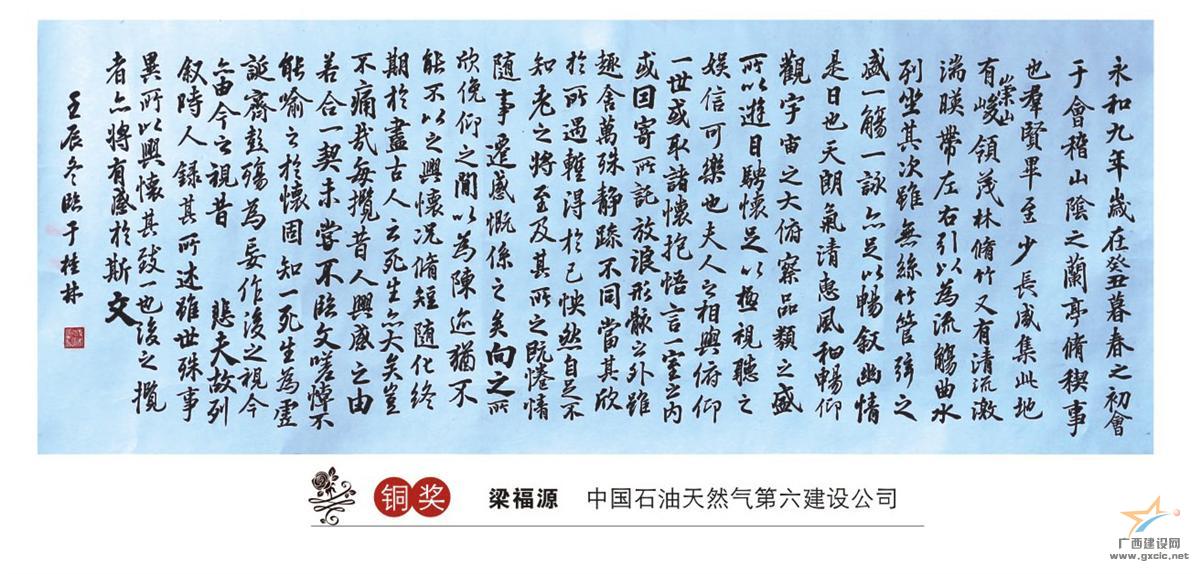 永和九年歲在癸丑暮春之初會
于會稽山陰之蘭亭脩稧事
也羣賢畢至少長咸集此地
有崇山峻領茂林脩竹又有清流激
湍暎帶左右引以為流觴曲水
列坐其次雖無絲竹管弦之
盛一觴一詠亦足以暢敘幽情
是日也天朗氣清惠風和暢仰
觀宇宙之大俯察品類之盛
所以遊目騁懷足以極視聽之
娛信可樂也夫人之相與俯仰
一世或取諸懷抱悟言一室之內
或因寄所託放浪形骸之外雖
趣舍萬殊靜躁不同當其欣
於所遇輒得於己怏然自足不
知老之將至及其所之既惓情
隨事遷感慨係之矣向之所
欣俛仰之閒以為陳迹猶不
能不以之興懷況脩短隨化終
期於盡古人云死生亦大矣豈
不痛哉每攬昔人興感之由
若合一契未嘗不臨文嗟悼不
能喻之於懷固知一死生為虛
誕齊彭殤為妄作後之視今
亦由今之視昔 悲夫故列
敘時人錄其所述雖世殊事
異所以興懷其致一也後之攬
者亦將有感於斯文
壬辰冬臨于桂林
铜奖 梁福源 中国石油天然气第六建设公司
广西建设网
www.gxcic.net